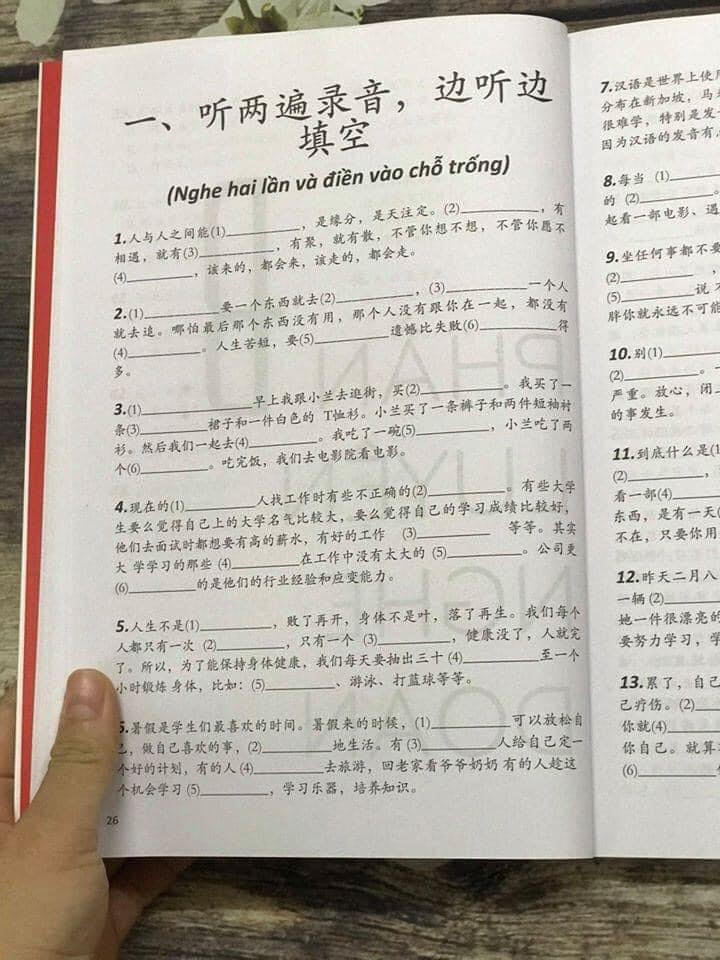 一、听两遍录音，边听边
填空
(Nghe hai lần và điền vào chỗ trống)
1.人与人之间能(1)__________，是缘分，是天注定。(2)__________，有
相遇，就有(3)__________，有聚，就有散，不管你想不想，不管你愿不
(4)__________，该来的，都会来，该走的，都会走。
2.(1)__________要一个东西就去(2)__________，(3)__________一个人
就去追。哪怕最后那个东西没有用，那个人没有跟你在一起，都没有
(4)__________。人生苦短，要(5)__________遗憾比失败(6)__________得
多。
3.(1)__________早上我跟小兰去逛街，买(2)__________。我买了一
条(3)__________裙子和一件白色的 T恤衫。小兰买了一条裤子和两件短袖衬
衫。然后我们一起去(4)__________。我吃了一碗(5)__________，小兰吃了两
个(6)__________。吃完饭，我们去电影院看电影。
4.现在的(1)__________人找工作时有些不正确的(2)__________。有些大学
生要么觉得自己上的大学名气比较大，要么觉得自己的学习成绩比较好，
他们去面试时都想要有高的薪水，有好的工作 (3)__________ 等等。其实
大 学学习的那些 (4)__________在工作中没有太大的 (5)__________。公司更
(6)__________的是他们的行业经验和应变能力。
5.人生不是(1)__________，败了再开，身体不是叶，落了再生。我们每个
人都只有一次 (2)__________，只有一个 (3)__________，健康没了，人就完
了。所以，为了能保持身体健康，我们每天要抽出三十 (4)__________至一个
小时锻炼 身体，比如：(5)__________、游泳、打蓝球等等。
6.暑假是学生们最喜欢的时间。暑假来的时候，(1)__________可以放松自
己，做自己喜欢的事，(2)__________地生活。有 (3)__________人给自己定一
个好的计划，有的人 (4)__________去旅游，回老家看爷爷奶奶 有的人趁这
个机会学习 (5)__________，学习乐器，培养知识。
26
7.汉语是世界上使用
分布在新加坡，马
很难学，特别是发
因为汉语的发音有
8.每当 (1)__________
的 (2)__________
起看一部电影、遇
9.坐任何事都不要
(2)__________，
(5)__________说不
胖你就永远不可能
10.别(1)__________
(2)__________。一
严重。放心，闭
的事发生。
11.到底什么是(1
(2)__________，
看一部(4)__________
东西，是有一天(
不在，只要你用
12.昨天二月八
一辆 (2)__________
她一件很漂亮的
要努力学习，学
13.累了，自己
己疗伤。(2)__________
你就(4)__________
你自己。就算
(6)__________
PHẦN
LUYỆN
NGHE
ĐOẠN